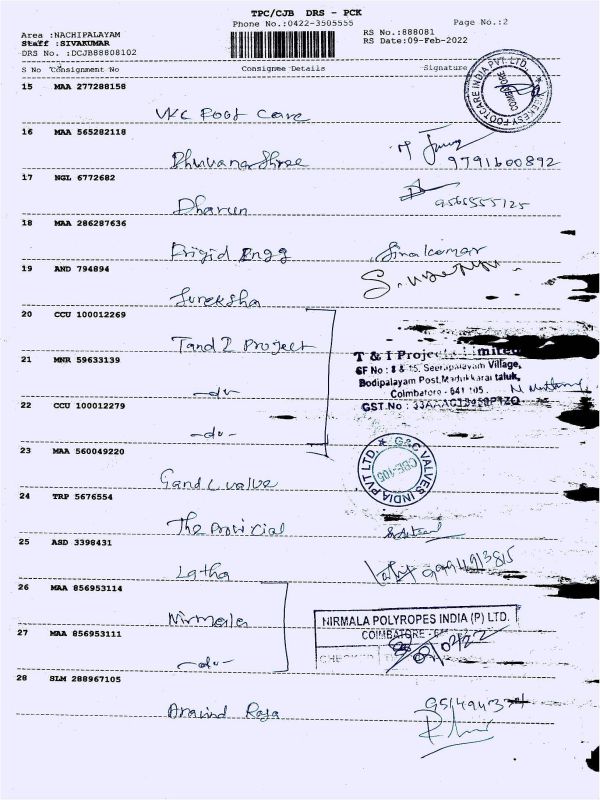 TPC/CJB DRS - PCK
Phone No.:0422-3505555
Page No.:2
Area :NACHIPALAYAM
Staff :SIVAKUMAR
DRS No. :DCJB88808102
RS No.:888081
RS Date:09-Feb-2022
S No Consignment No Consignee Details Signature
15 MAA 277288158
VKC Foot Care
16 MAA 565282118
Dhuvana Shree
9791600892
17 NGL 6772682
Dharun
9565555125
18 MAA 286287636
Frigid Engg
Sivakumar
19 AND 794894
Sureksha
20 CCU 100012269
T and I Project
T & I Projects Limited
SF No : 8 & 15, Seerapalayam Village,
Bodipalayam Post, Madukkarai taluk,
Coimbatore - 641 105.
GST.No :
21 MNR 59633139
-do-
22 CCU 100012279
-do-
23 MAA 560049220
G and C valve
G&C VALVES INDIA PVT LTD.
CBE-105
24 TRP 5676554
The Provicial
25 ASD 3398431
Latha
9994913815
26 MAA 856953114
Nirmala
NIRMALA POLYROPES INDIA (P) LTD.
COIMBATORE
27 MAA 856953111
-do-
28 SLM 288967105
Aravind Raja